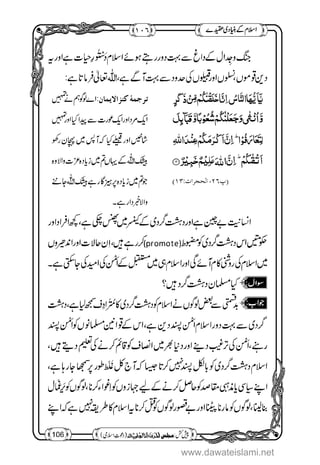 اسلام کے بنیادی عقیدے
۱۰۶
جنگ وجدال کے داغ سے بہت دور رہتے ہوئے اسلام اور
دین قوموں اور نسلوں کی حدود سے بہت آگے ہے، اللہ تعالیٰ فرماتا ہے:
یٰۤاَیُّهَا النَّاسُ اِنَّا خَلَقْنٰكُمْ مِّنْ ذَكَرٍ
وَّ اُنْثٰى وَ جَعَلْنٰكُمْ شُعُوْبًا وَّ قَبَآىٕلَ
لِتَعَارَفُوْاؕ اِنَّ اَكْرَمَكُمْ عِنْدَ اللّٰهِ
اَتْقٰىكُمْؕ اِنَّ اللّٰهَ عَلِیْمٌ خَبِیْرٌ
(پ۲۶، الحجرات: ۱۳)
ترجمهٔ کنز الایمان: اے لوگو ہم نے تمہیں
ایک مرد اور ایک عورت سے پیدا کیا اور تمہیں
شاخیں اور قبیلے کیا کہ آپس میں پہچان رکھو،
بیشک اللہ کے یہاں تم میں زیادہ عزت والا وہ
جو تم میں زیادہ پرہیزگار ہے بیشک اللہ جاننے
والا خبردار ہے۔
انسانیت بے چین ہے اور دہشت گردی کے میں پھنس چکی ہے، کچھ افراد اور
حکومتیں اس دہشت گردی کو مضبوط (promote) کر رہے ہیں، ان حالات اور ان اندھیروں
میں اسلام کی روشنی کام آئے گی اور اسلام ہی میں مستقبل کے امن کی امید کی جا سکتی ہے۔
سوال
کیا مسلمان دہشت گرد ہیں؟
جواب
بدقسمتی سے بعض لوگوں نے اسلام کو دہشت گردی کا مترادف سمجھ لیا ہے، دہشت
گردی سے بہت دور اسلام امن پسند دین ہے، اس کے قوانین مسلمانوں کو امن پسند
رہنے، امن کی ترغیب دینے اور دنیا بھر میں انصاف کو قائم کرنے کی تعلیم دیتے ہیں،
اسلام دہشت گردی کو بالکل پسند نہیں کرتا جیسا کہ آج کل غلط طور پر سمجھا جا رہا ہے،
اپنے سیاسی یا مذہبی مقاصد کو حاصل کرنے کے لیے جہازوں کو اغوا کرنا، لوگوں کو یرغمال
بنا لینا، لوگوں کو مارنا پیٹنا اور بے قصور لوگوں کو قتل کرنا یہ اسلام کا طریقہ نہیں ہے اپنے
106
www.dawateislami.net